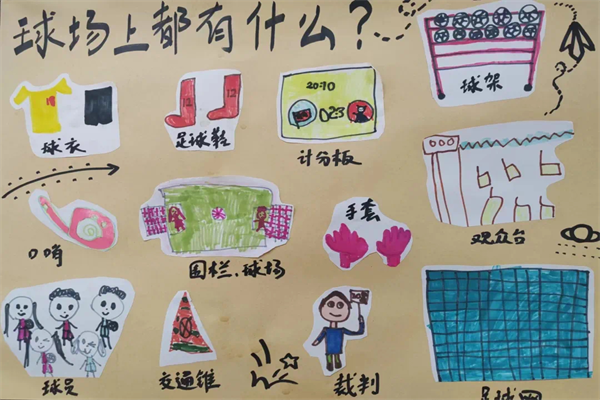 球场上都有什么？
球架
球衣
足球鞋
12
12
计分板
口哨
围栏、球场
手套
观众台
球员
交通锥
裁判
足球网